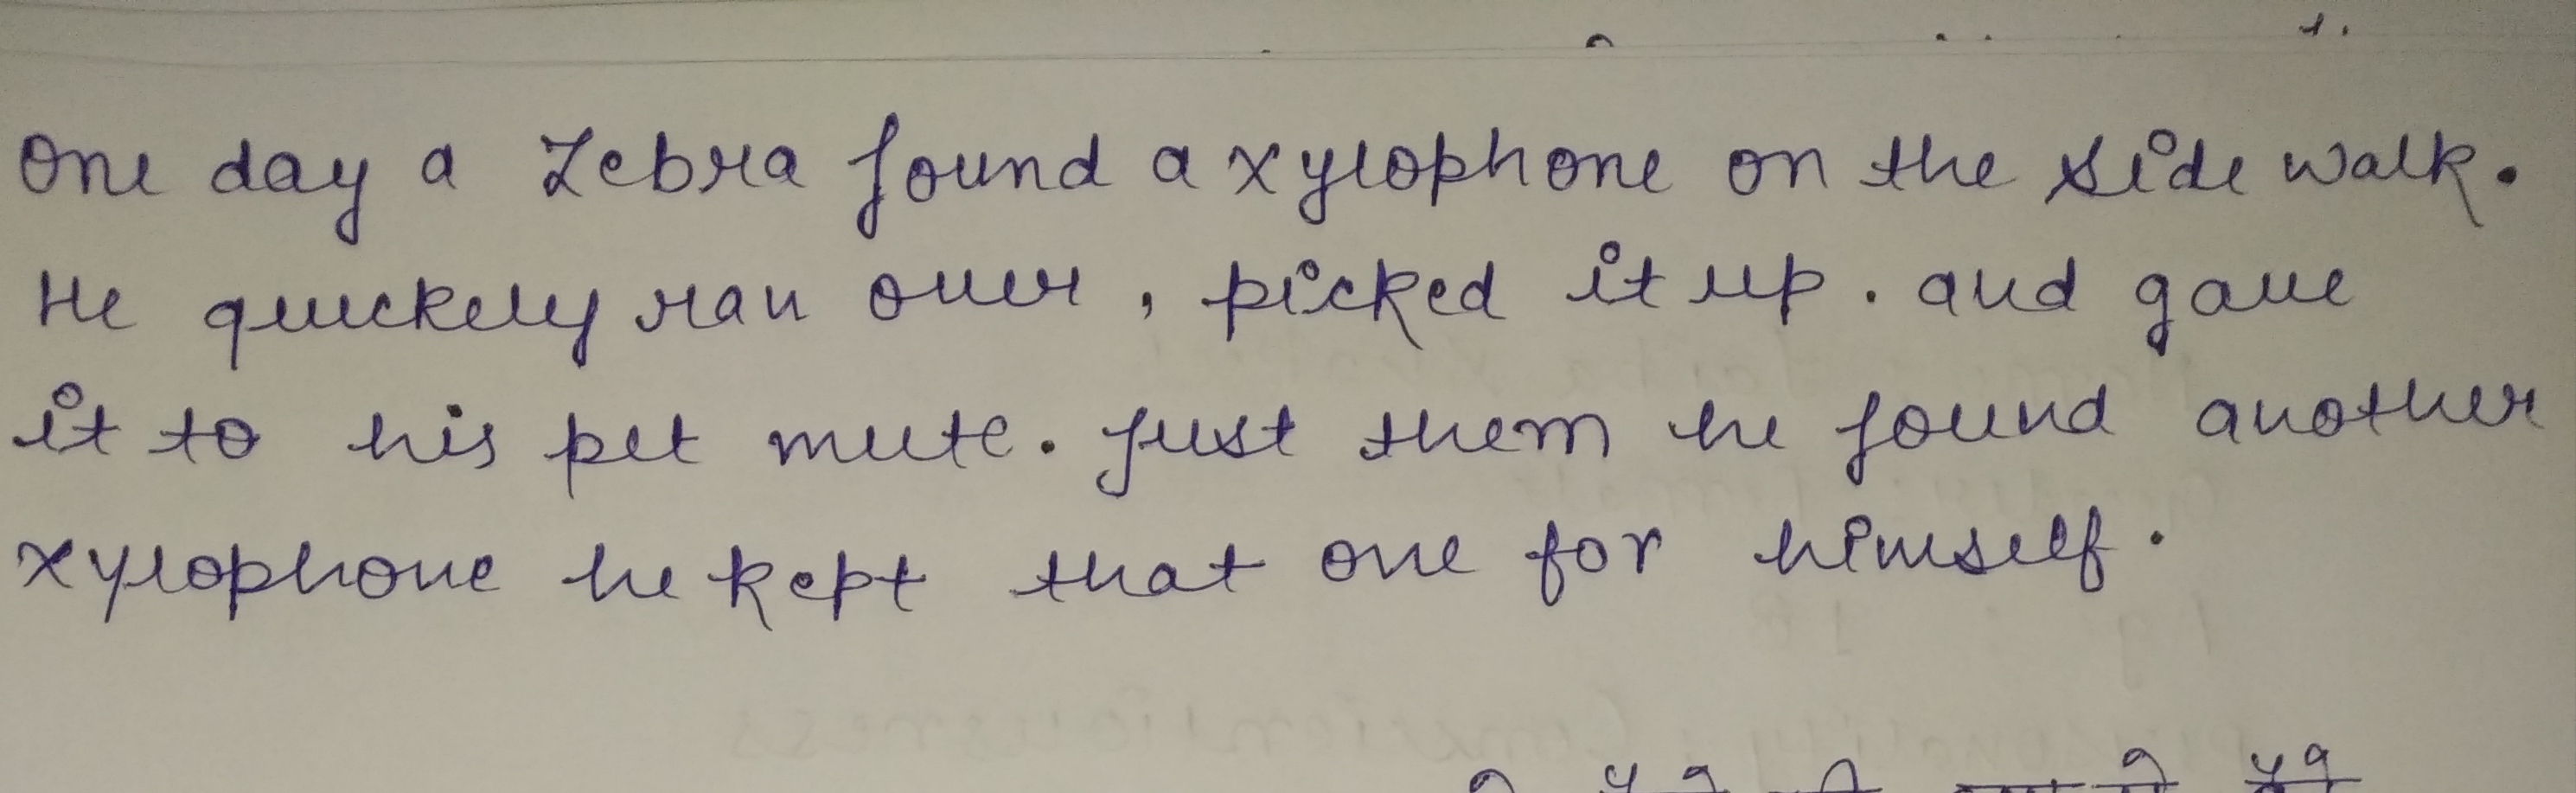 One day a Zebra found a xylophone on the side walk.
He quickely ran over, picked it up. and gave
it to his pet mute. Just them he found another
xylophone he kept that one for himself.